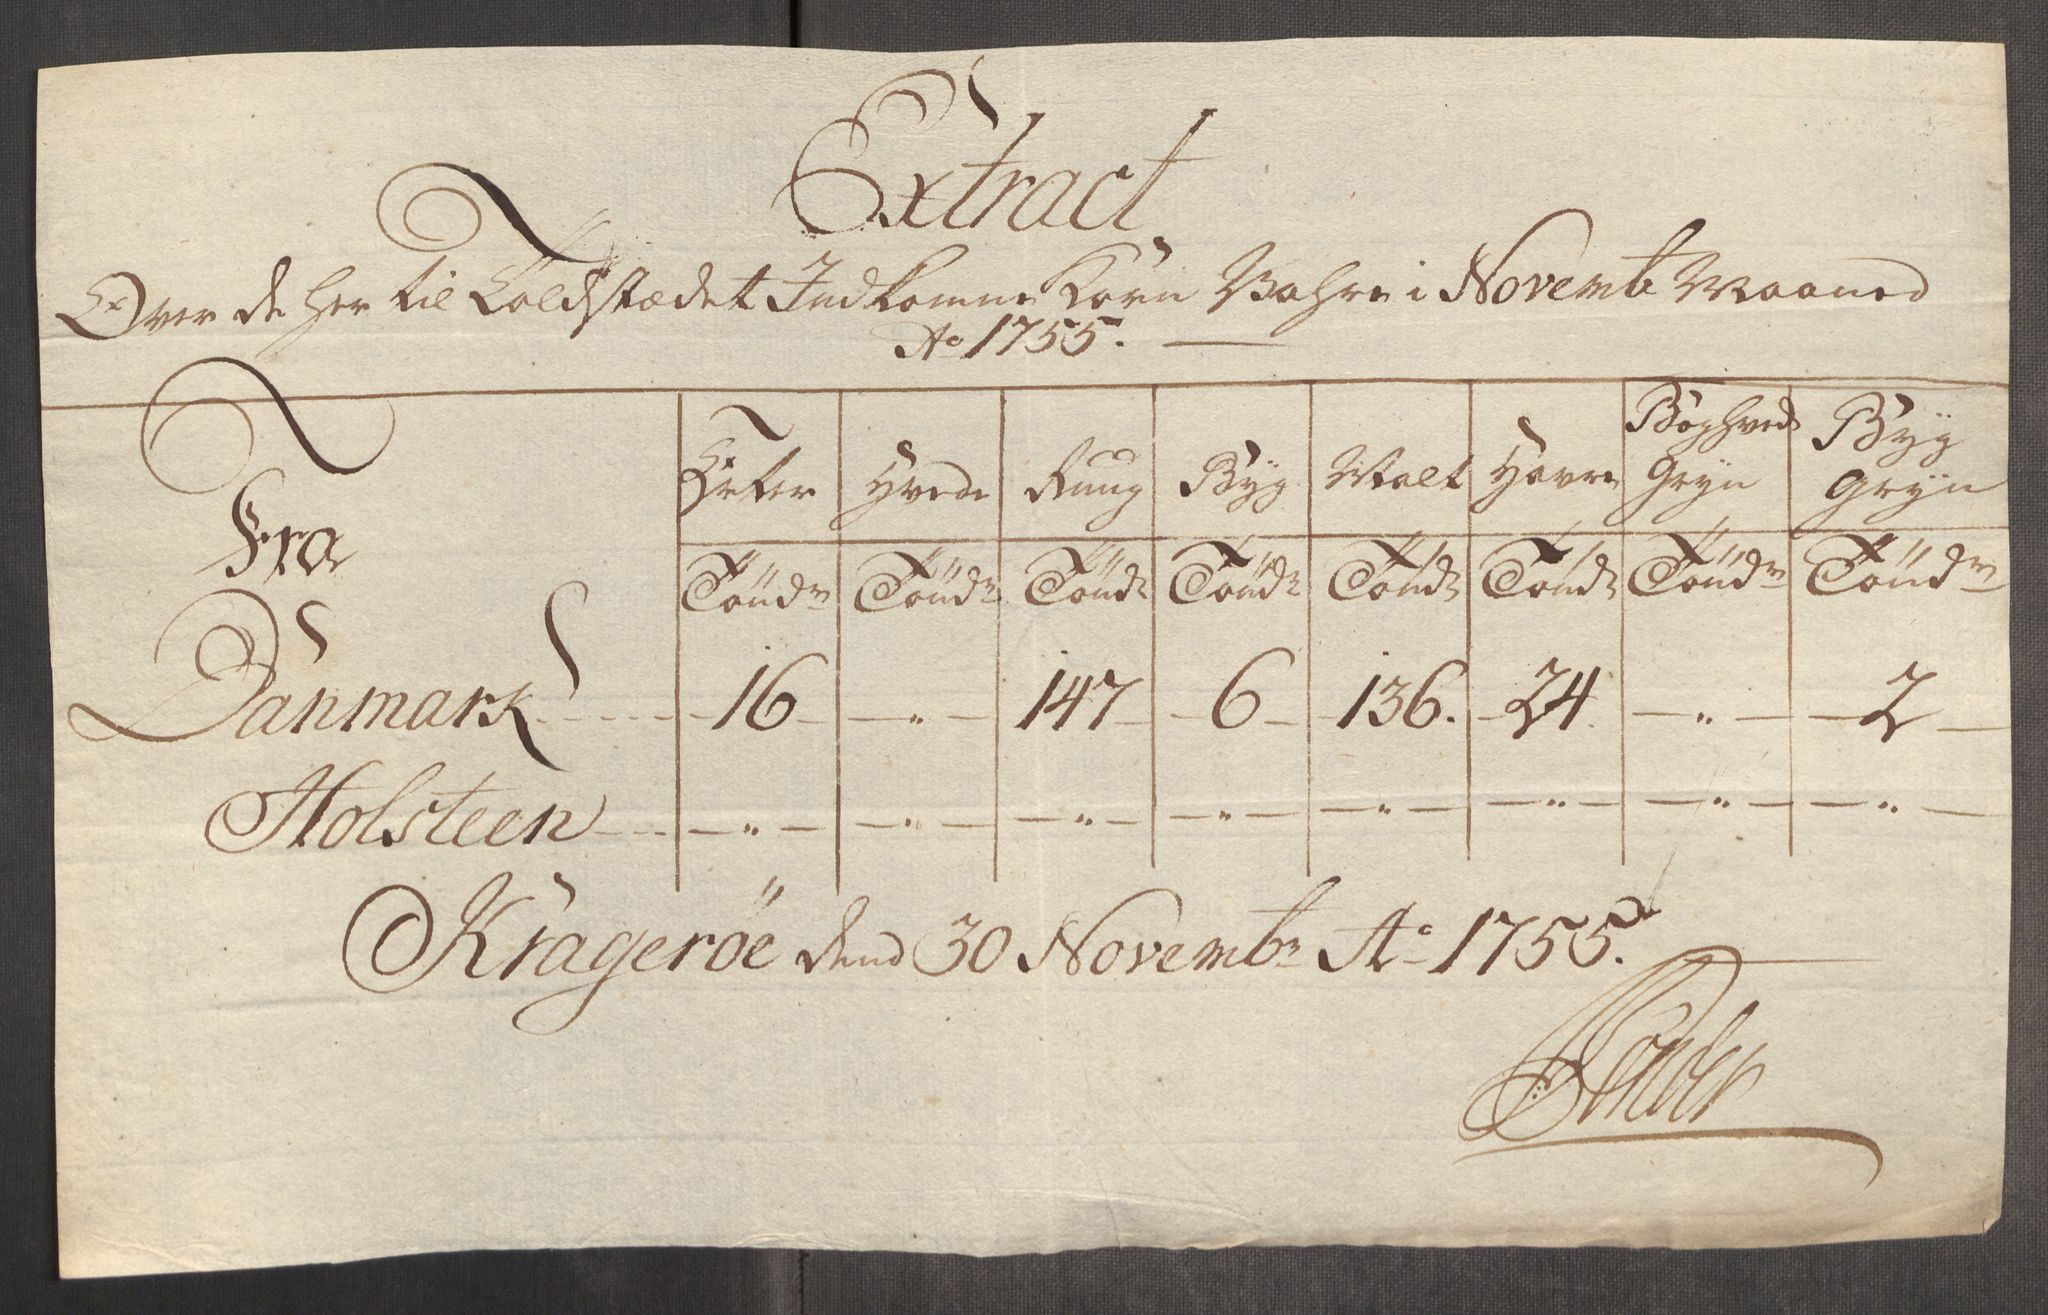 Extract
Over de her til Toldstædet Indkomne Korn Vahre i Novemb Maaned
Ao 1755.
Erter Hvede Rug Byg Malt Havre Boghvede Gryn Byg Gryn
Fra
Tönder Tönder Tönder Tönder Tönder Tönder Tönder Tönder
Danmark 16 " 147 6 136. 24 " 2
Holsteen " " " " " " " "
Krageröe dend 30 Novembr Ao 1755.